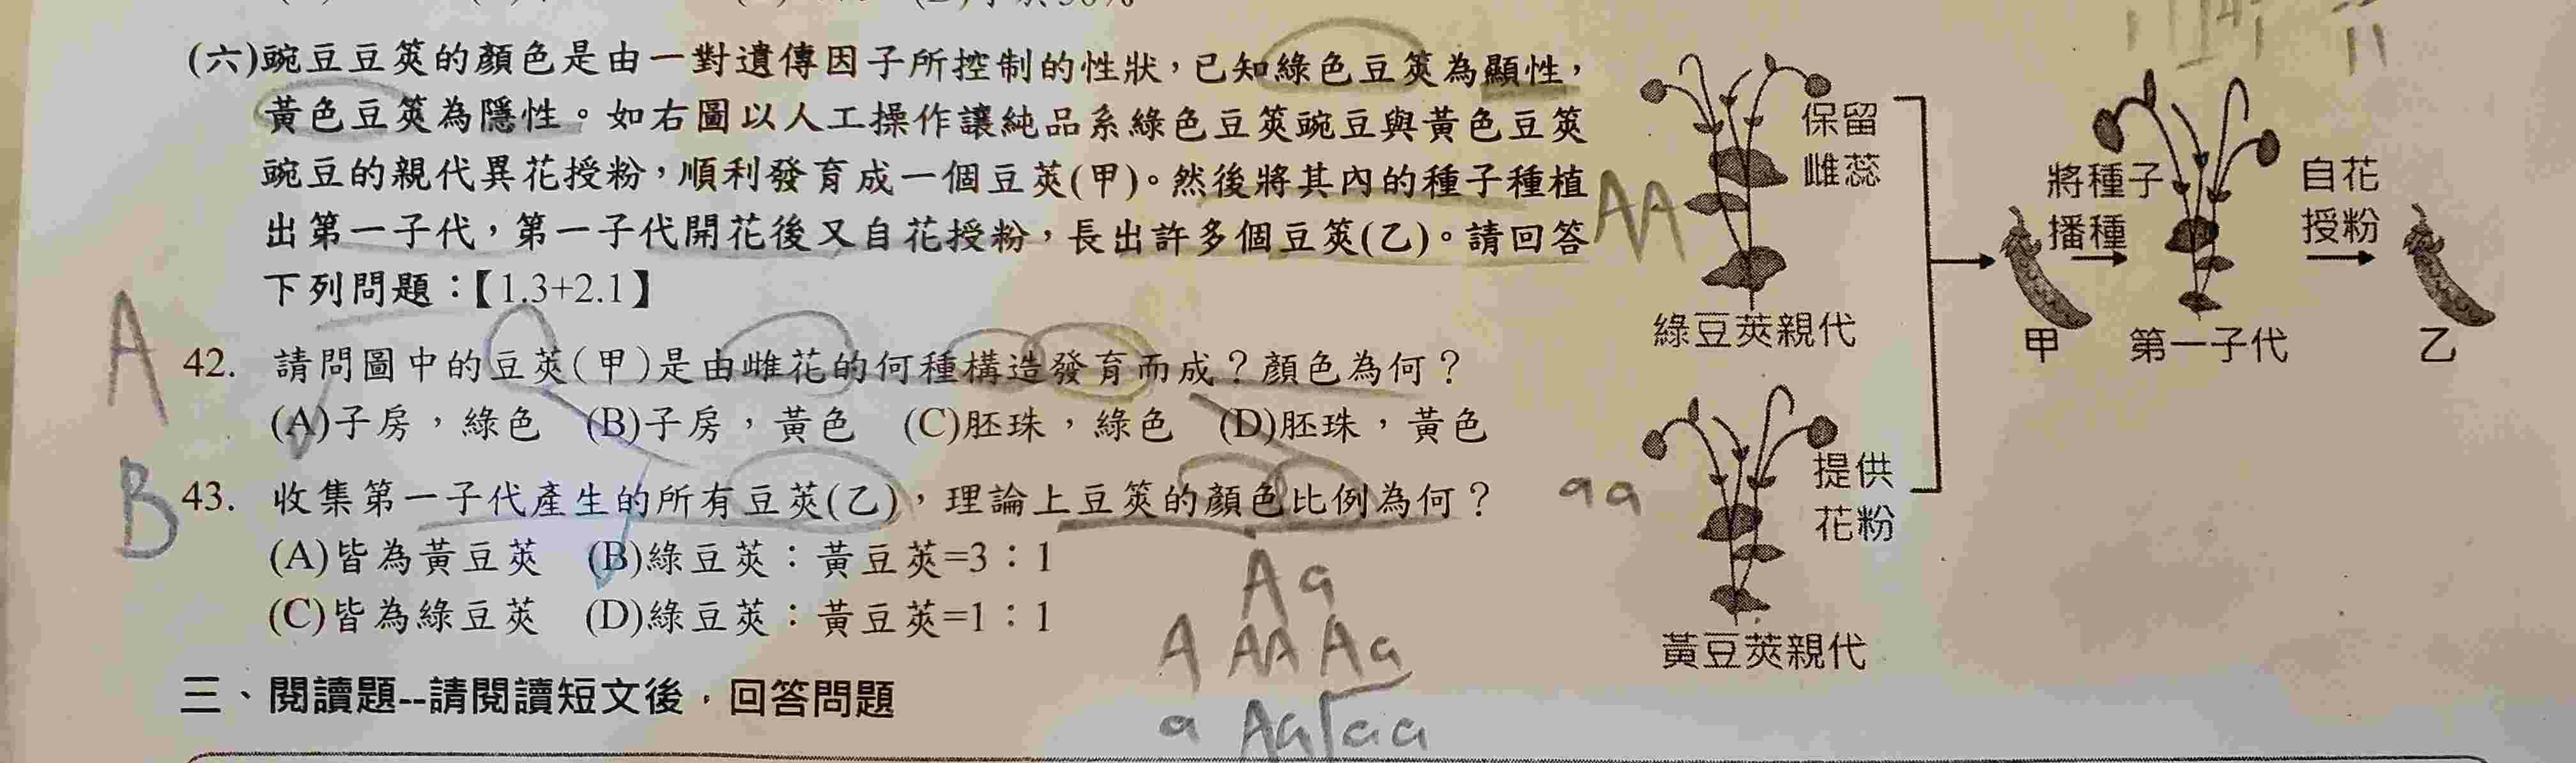 (六)豌豆豆莢的顏色是由一對遺傳因子所控制的性狀，已知綠色豆莢為顯性，
黃色豆莢為隱性。如右圖以人工操作讓純品系綠色豆莢豌豆與黃色豆莢
豌豆的親代異花授粉，順利發育成一個豆莢(甲)。然後將其內的種子種植
出第一子代，第一子代開花後又自花授粉，長出許多個豆莢(乙)。請回答
下列問題：【1.3+2.1】
A
42. 請問圖中的豆莢(甲)是由雌花的何種構造發育而成？顏色為何？
(A)子房，綠色 (B)子房，黃色 (C)胚珠，綠色 (D)胚珠，黃色
B
43. 收集第一子代產生的所有豆莢(乙)，理論上豆莢的顏色比例為何？
(A)皆為黃豆莢 (B)綠豆莢：黃豆莢=3：1
(C)皆為綠豆莢 (D)綠豆莢：黃豆莢=1：1
A a
A AA Aa
a Aa aa
三、閱讀題--請閱讀短文後，回答問題
保留
雌蕊
AA
綠豆莢親代
提供
花粉
aa
黃豆莢親代
甲
將種子
播種
第一子代
自花
授粉
乙